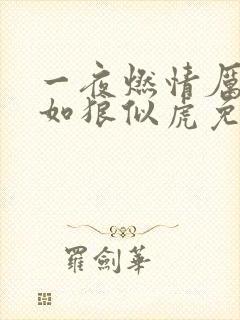 一夜燃情
如狼似虎
羅劍華